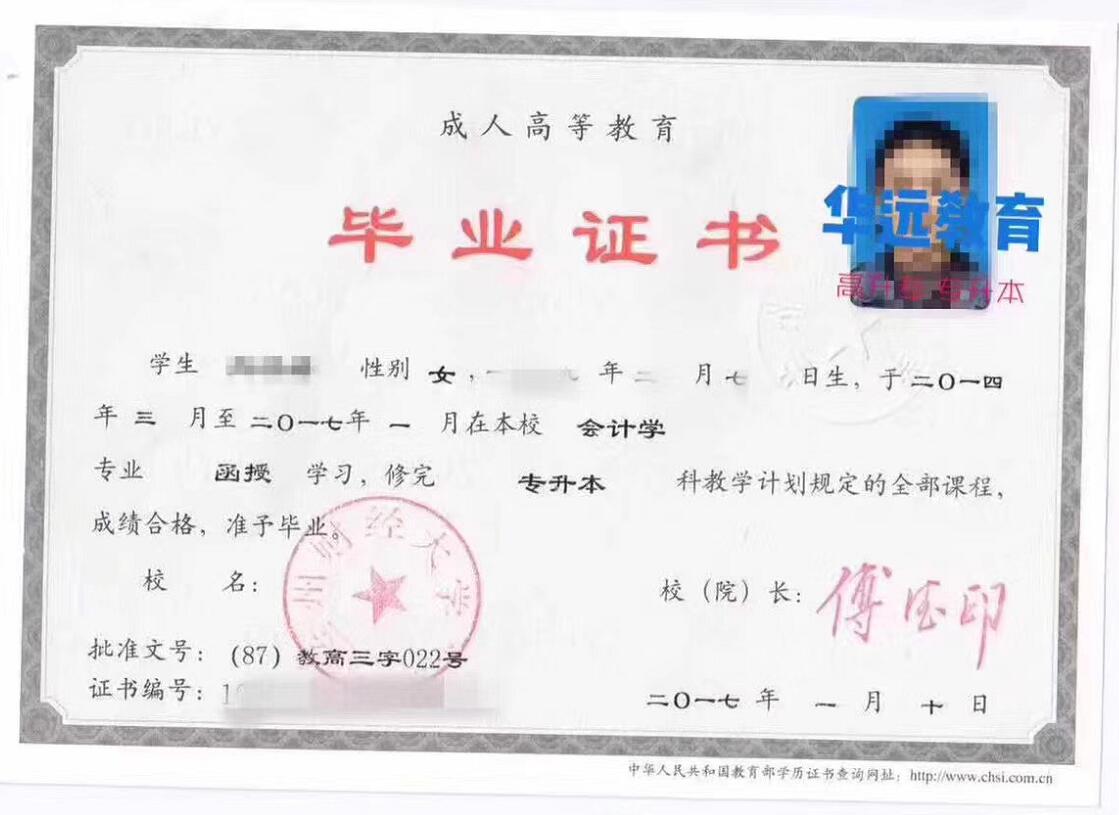 成人高等教育
毕业证书
华远教育
高升专 专升本
学生 性别 女, 年 二 月 七 日生, 于二〇一四
年 三 月至 二〇一七年 一 月在本校 会计学
专业 函授 学习, 修完 专升本 科教学计划规定的全部课程,
成绩合格, 准予毕业。
州财经大学
校 名:
校 (院) 长: 傅德印
批准文号: (87) 教高三字022号
证书编号: 1
二〇一七 年 一 月 十 日
中华人民共和国教育部学历证书查询网址: http://www.chsi.com.cn